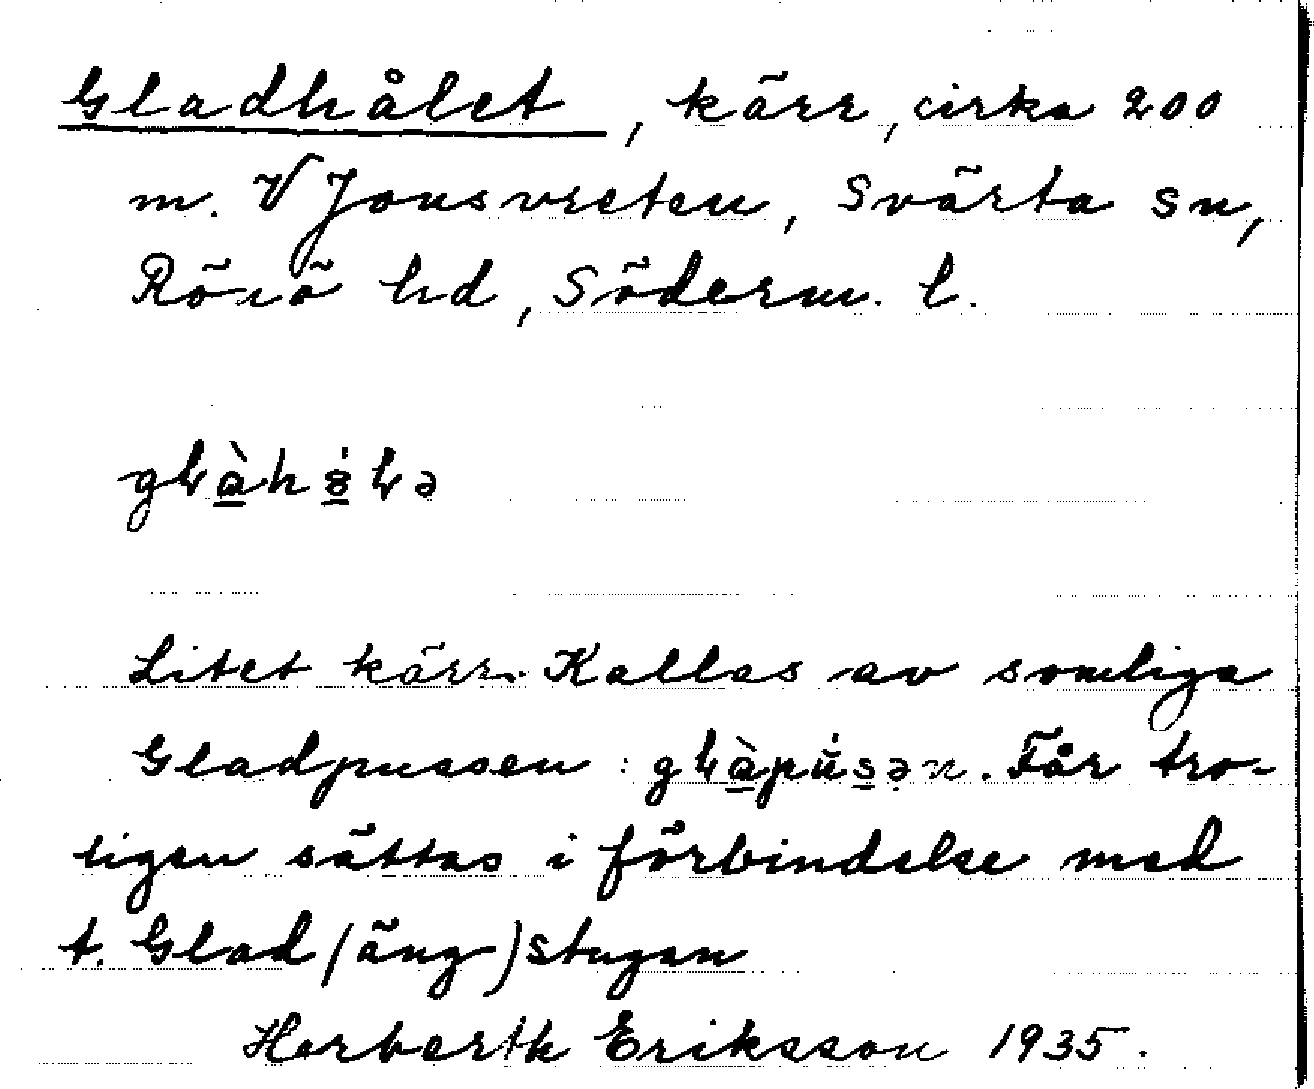 Gladhålet, kärr, cirka 200
m. V Jonsvreten, Svärta sn,
Rönö hd, Söderm. l.
Litet kärr. Kallas av somliga
Gladpussen: Får tro-
ligen sättas i förbindelse med
t. Glad(äng)stugan
Herberth Eriksson 1935.